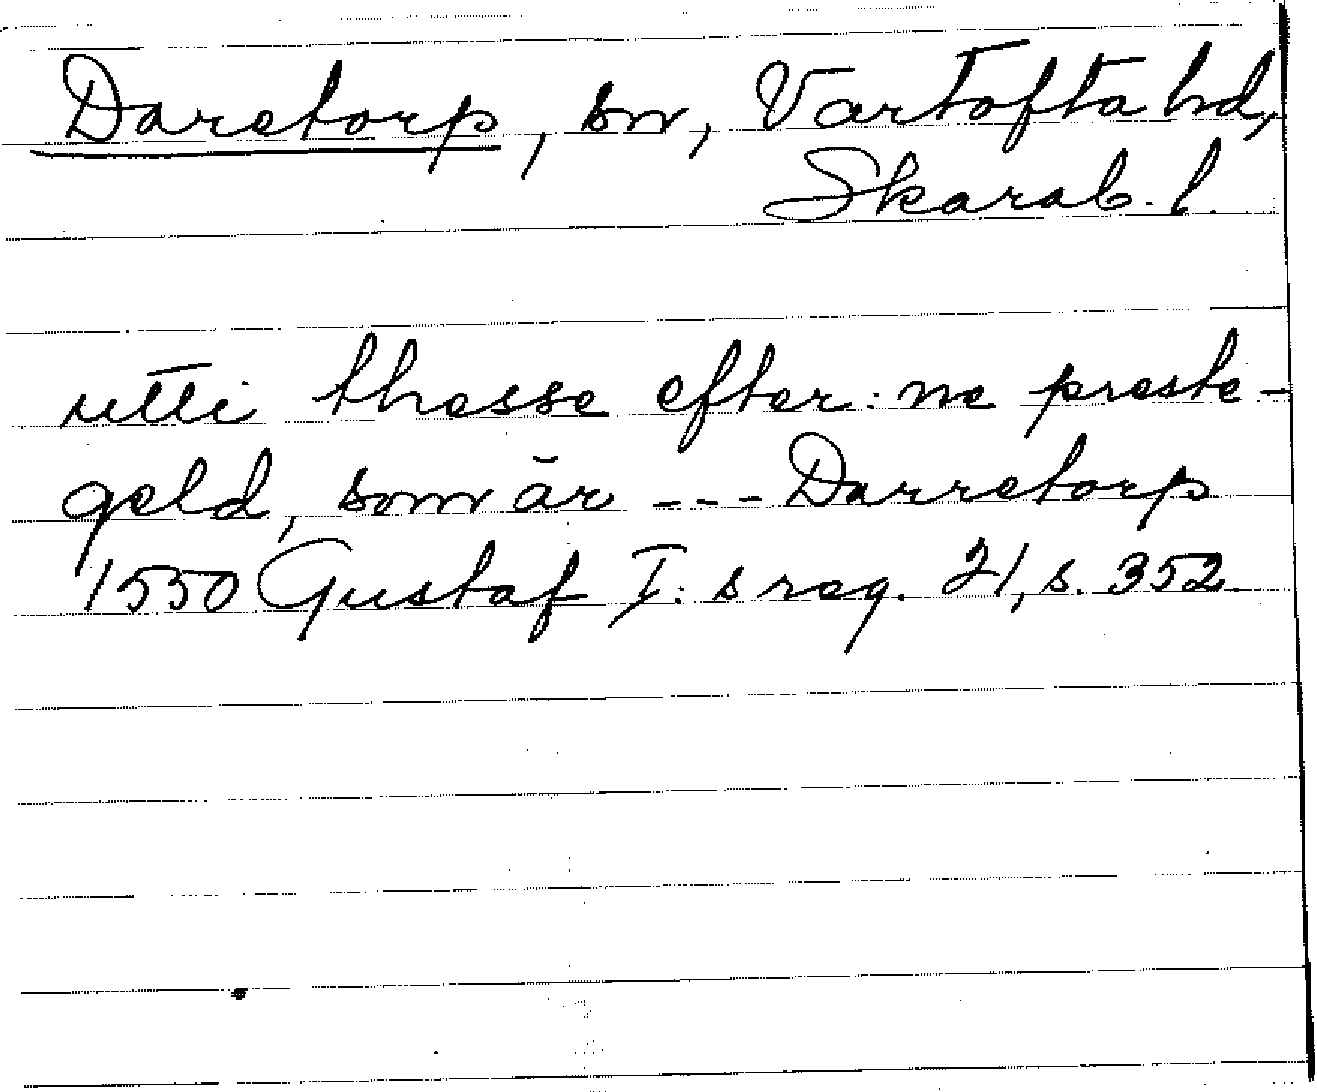 Daretorp, sn, Vartofta hd,
Skarab. l.
utti thesse efter: ne preste-
geld, som är --- Darretorp
1550 Gustaf I: s reg. 21, s. 352.